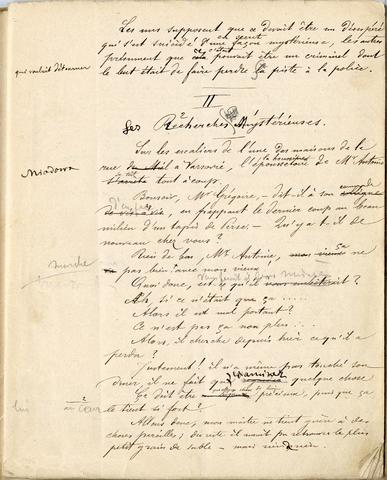 Les uns supposent que ce devait être un désespéré
qui s'est suicidé d'une façon mystérieuse, les autres
prétennent que ce pouvait être un criminel dont
qui voulait détourner
le but était de faire perdre la piste à la police.
II
Les Recherches Mystérieuses.
Sur les escaliers de l'une des maisons de la
Miodowa
rue à Varsovie, l'époussetoire de Mr Antoine
tout à coup.
Bonsoir, Mr Grégoire, – dit-il à son
d'en face
en frappant le dernier coup au beau
milieu d'un tapis de Perse. – Qu'y a-t-il de
nouveau chez vous?
Rien de bon, Mr Antoine, ça ne
marche
pas bien avec mon vieux
Quoi donc, est-ce qu'il
Ah, si ce n'était que ça .....
Alors il est mal portant?
Ce n'est pas ça non plus...
Alors, il cherche depuis hier ce qu'il a
perdu?
Justement! il n'a même pas touché son
dîner, il ne fait que quelque chose
Ça doit être précieux, puisque ça
lui
au cœur
le tient si fort?
Allons donc, mon maître ne tient guère à des
choses pareilles; du reste il aurait pu retrouver le plus
petit grain de sable – mais